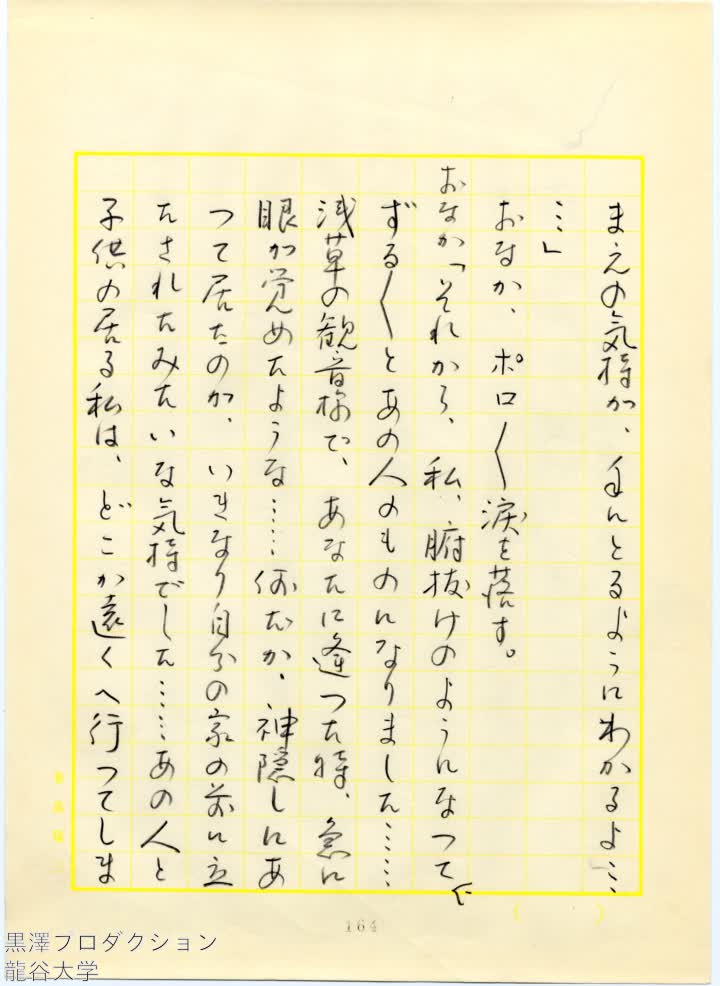 まえの気持が、手にとるようにわかるよ…
…」
おなか、ポロ〱涙を落す。
おなか「それから、私、腑抜けのようになつて
ずる〱とあの人のものになりました……
浅草の観音様で、あなたに逢つた時、急に
眼が覚めたような……何だか、神隠しにあ
つて居たのが、いきなり自分の家の前に立
たされたみたいな気持でした……あの人と
子供の居る私は、どこか遠くへ行つてしま
164
黒澤プロダクション
龍谷大学